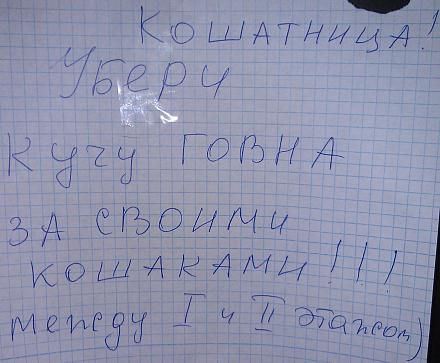 КОШАТНИЦА!
УБЕРИ
КУЧУ ГОВНА
ЗА СВОИМИ
КОШАКАМИ!!!
между I и II этажом)